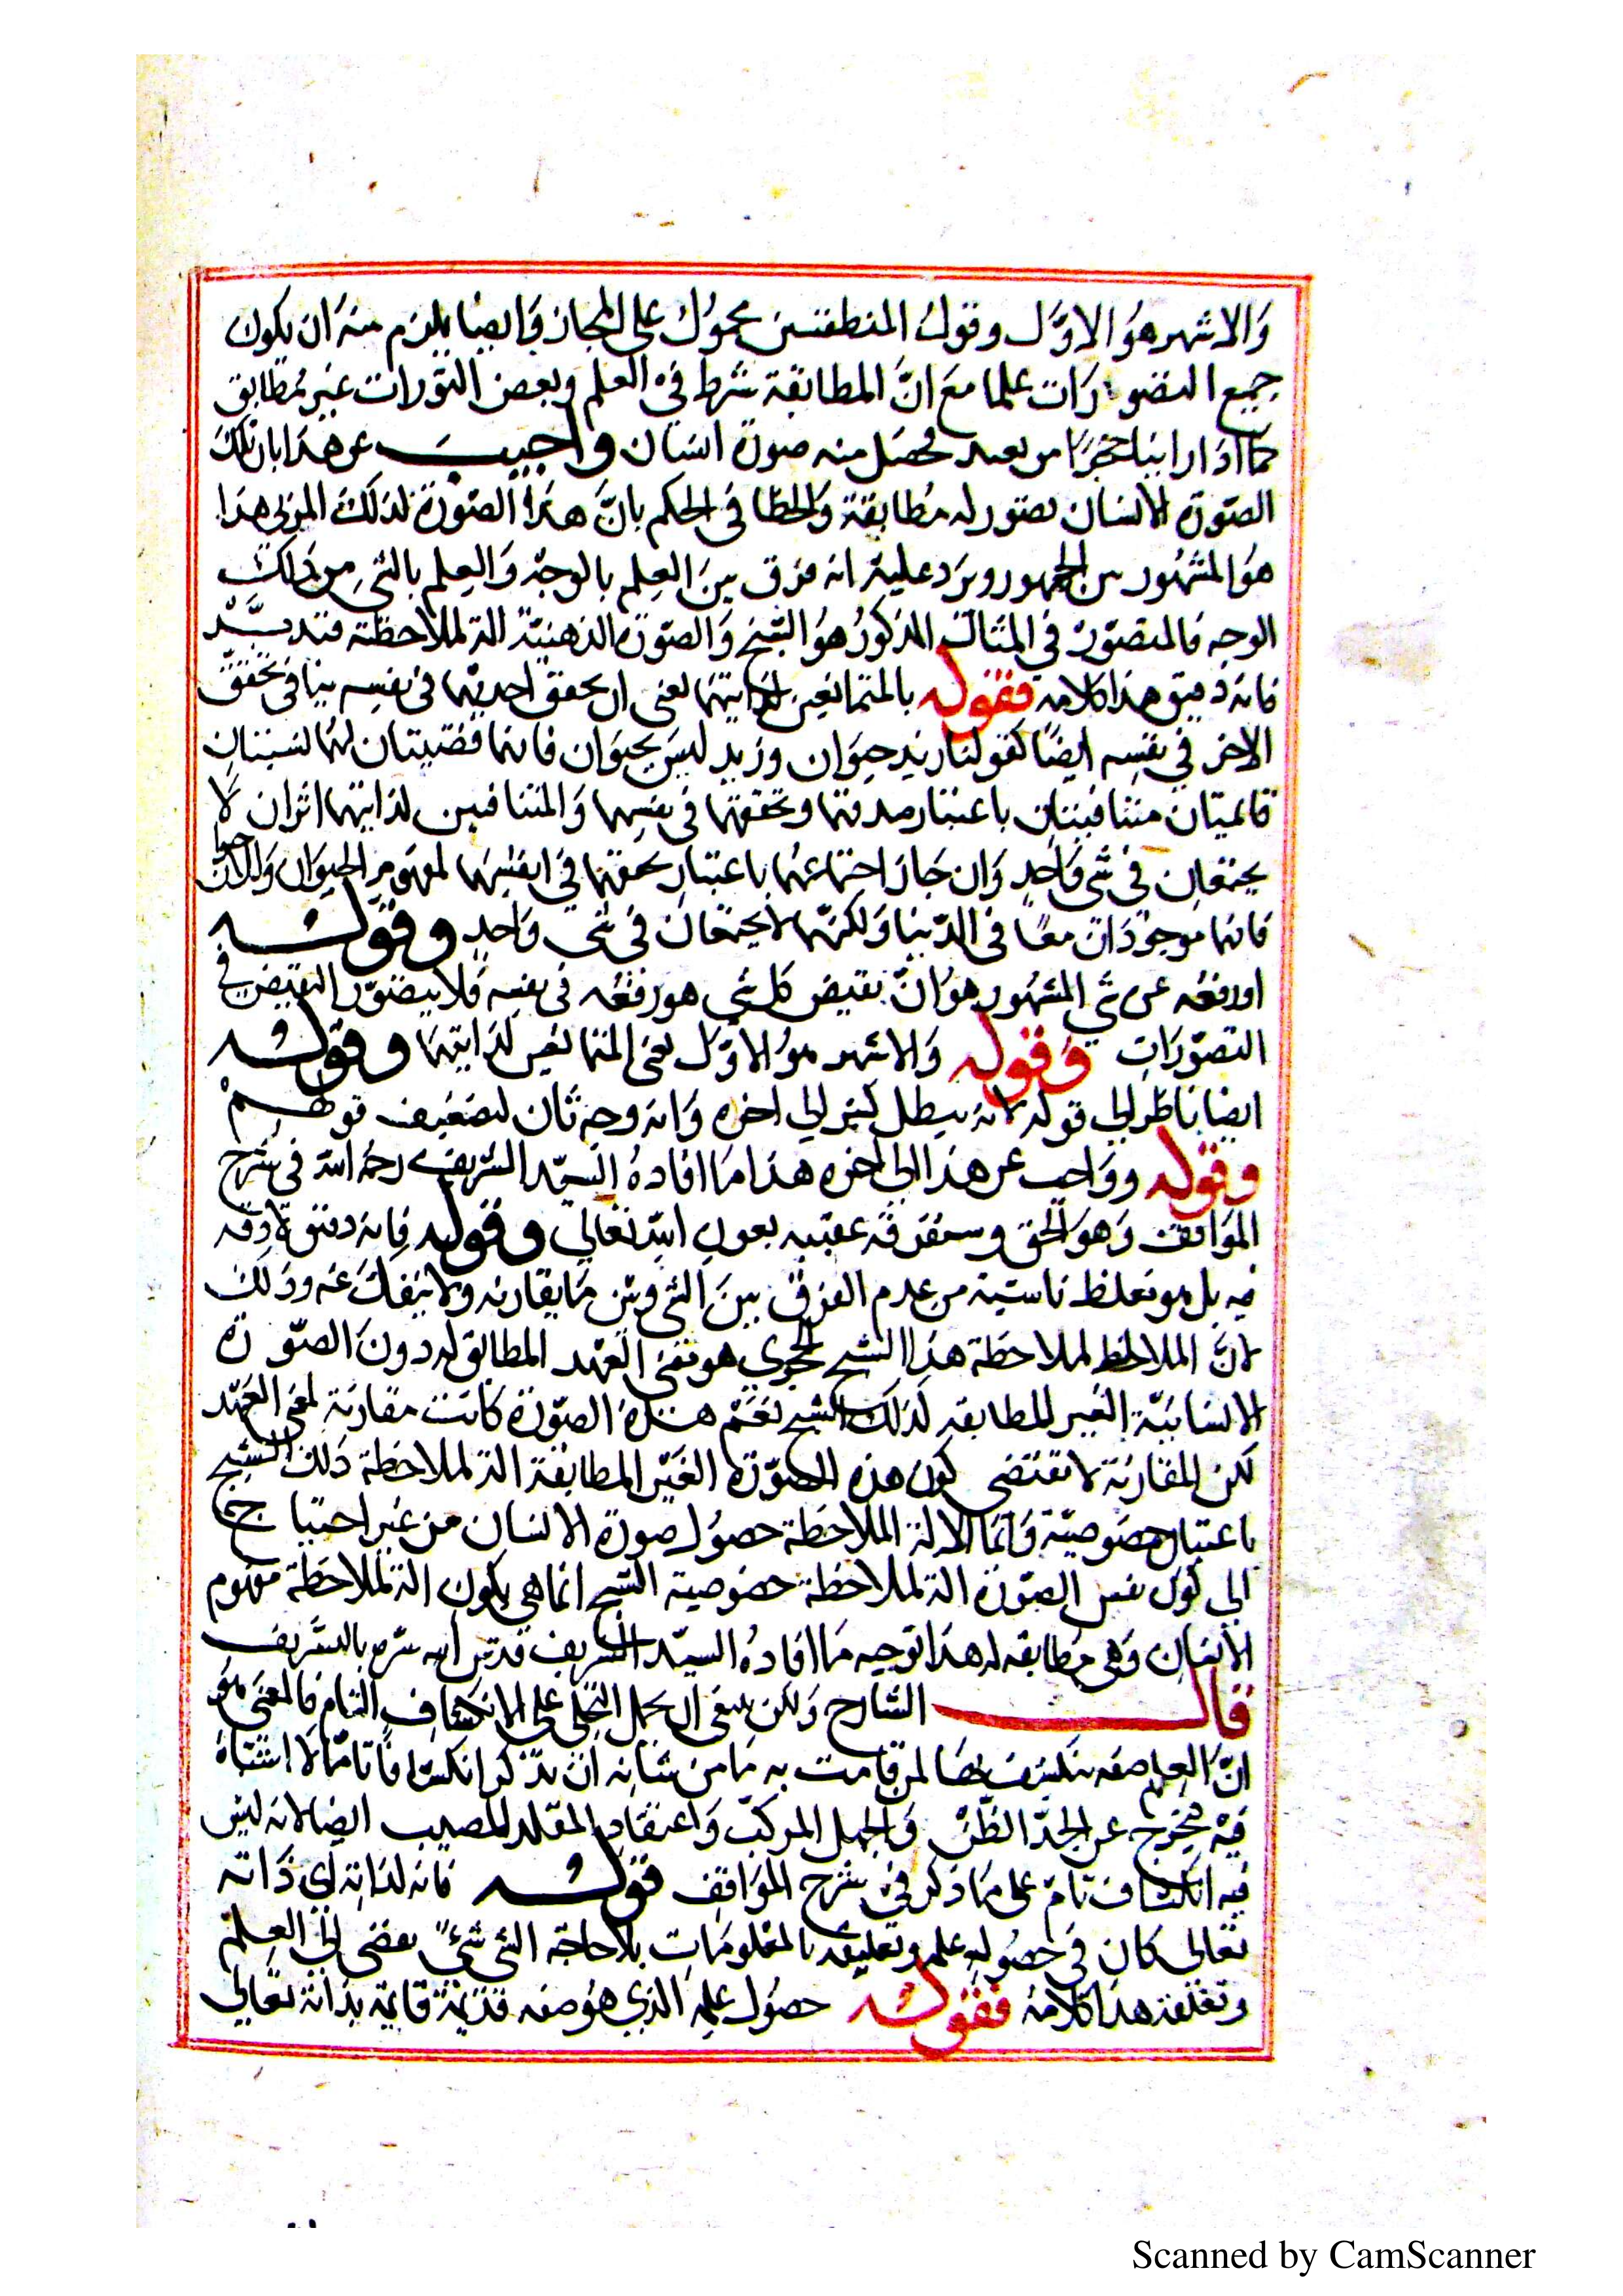 والاشهر هو الاول وقول المنطقيين محمول على المجاز وايضا يلزم منه ان يكون
جميع التصورات علما مع ان المطابقة شرط في العلم وبعض التورات غير مطابق
كما اذا راينا حجرا من بعيد فحصل منه صورة انسان واجيب عن هذا بان تلك
الصورة الانسان تصور له مطابقة والخطا في الحكم بان هذا الصورة لذلك المرئي هذا
هو المشهور بين الجمهور ويرد عليه انه فرق بين العلم بالوجه والعلم بالشي من ذلك
الوجه فالمتصور في المثال المذكور هو الشبح والصورة الذهنية الة لملاحظة فتدبر
فانه دقيق هذا كلامه فقوله بالمتمانعين لذاتيهما يعني ان تحقق احديهما في نفسه ينافي تحقق
الاخر في نفسه ايضا كقولنا زيد حيوان وزيد ليس بحيوان فانهما قضيتان لهما نسبتان
قائميتان متنافيتان باعتبار صدقهما وتحققهما في نفسهما والمتنافيين لذاتيهما اثران لا
يجتمعان في شي واحد وان جاز اجتماعهما باعتبار تحققهما في انفسهما لمفهوم الحيوان واللا حيوان
فانهما موجودان معا في الدنيا ولكنهما لا يجتمعان في شي واحد وقوله
او رفعه عن شي المشهور هو ان نقيض كل شي هو رفعه في نفسه فلا يتصور النقيض في
التصورات وقوله والاشهر هو الاول يعني المتمانعين لذاتيهما وقوله
ايضا ناظر الى قوله لانه يبطل كثير الى اخره وانه وجه ثان لتضعيف قولهم
وقوله وواجيب عن هذا الى اخره هذا ما افاده السيد الشريف رحمه الله في شرح
المواقف وهو الحق وستعرفه عقيبه بعون الله تعالى وقوله فانه دقيق لا دقة
فيه بل هو تغلط ناشية من عدم الفرق بين الشي وبين ما يقارنه ولا ينفك عنه وذلك
لان الملاحظ لملاحظة هذا الشبح الحجري هو معنى العهد المطابق له دون الصورة
الانسانية الغير المطابقة لذلك الشبح نعم هذه الصورة كانت مقارنة لمعنى العهد
لكن المقارنة لا تقتضي كون هذه الصورة الغير المطابقة الة لملاحظة ذلك الشبح
باعتبار خصوصية وانما الالة الملاحظة حصول صورة الانسان من غير احتياج
الى كون نفس الصورة الة لملاحظة خصوصية الشبح انما هي يكون الة لملاحظة مفهوم
الانسان وهي مطابقه له هذا توجيه ما افاده السيد الشريف قدس الله سره بالشريف
قال الشارح ولكن ينبغي ان يحمل التجلي على الانكشاف التام فالمعنى هو
ان العلم صفه ينكشف بها لمن قامت به ما من شانه ان يذكر انكشافا تاما لا اشتباه
فيه فيخرج عن الحد الظن والجهل المركب واعتقاد المقلد المصيب ايضا لانه ليس
فيه انكشاف تام على ما ذكر في شرح المواقف قوله فانه لذاته اي ذاته
تعالى كان في حصوله علمه وتعليقه بالمعلومات بلا حاجة الشي شيء يفضى الى العلم
وتعلقه هذا كلامه فقوله حصول علمه الذي هو صفه قديمة قايمة بذاته تعالى
Scanned by CamScanner